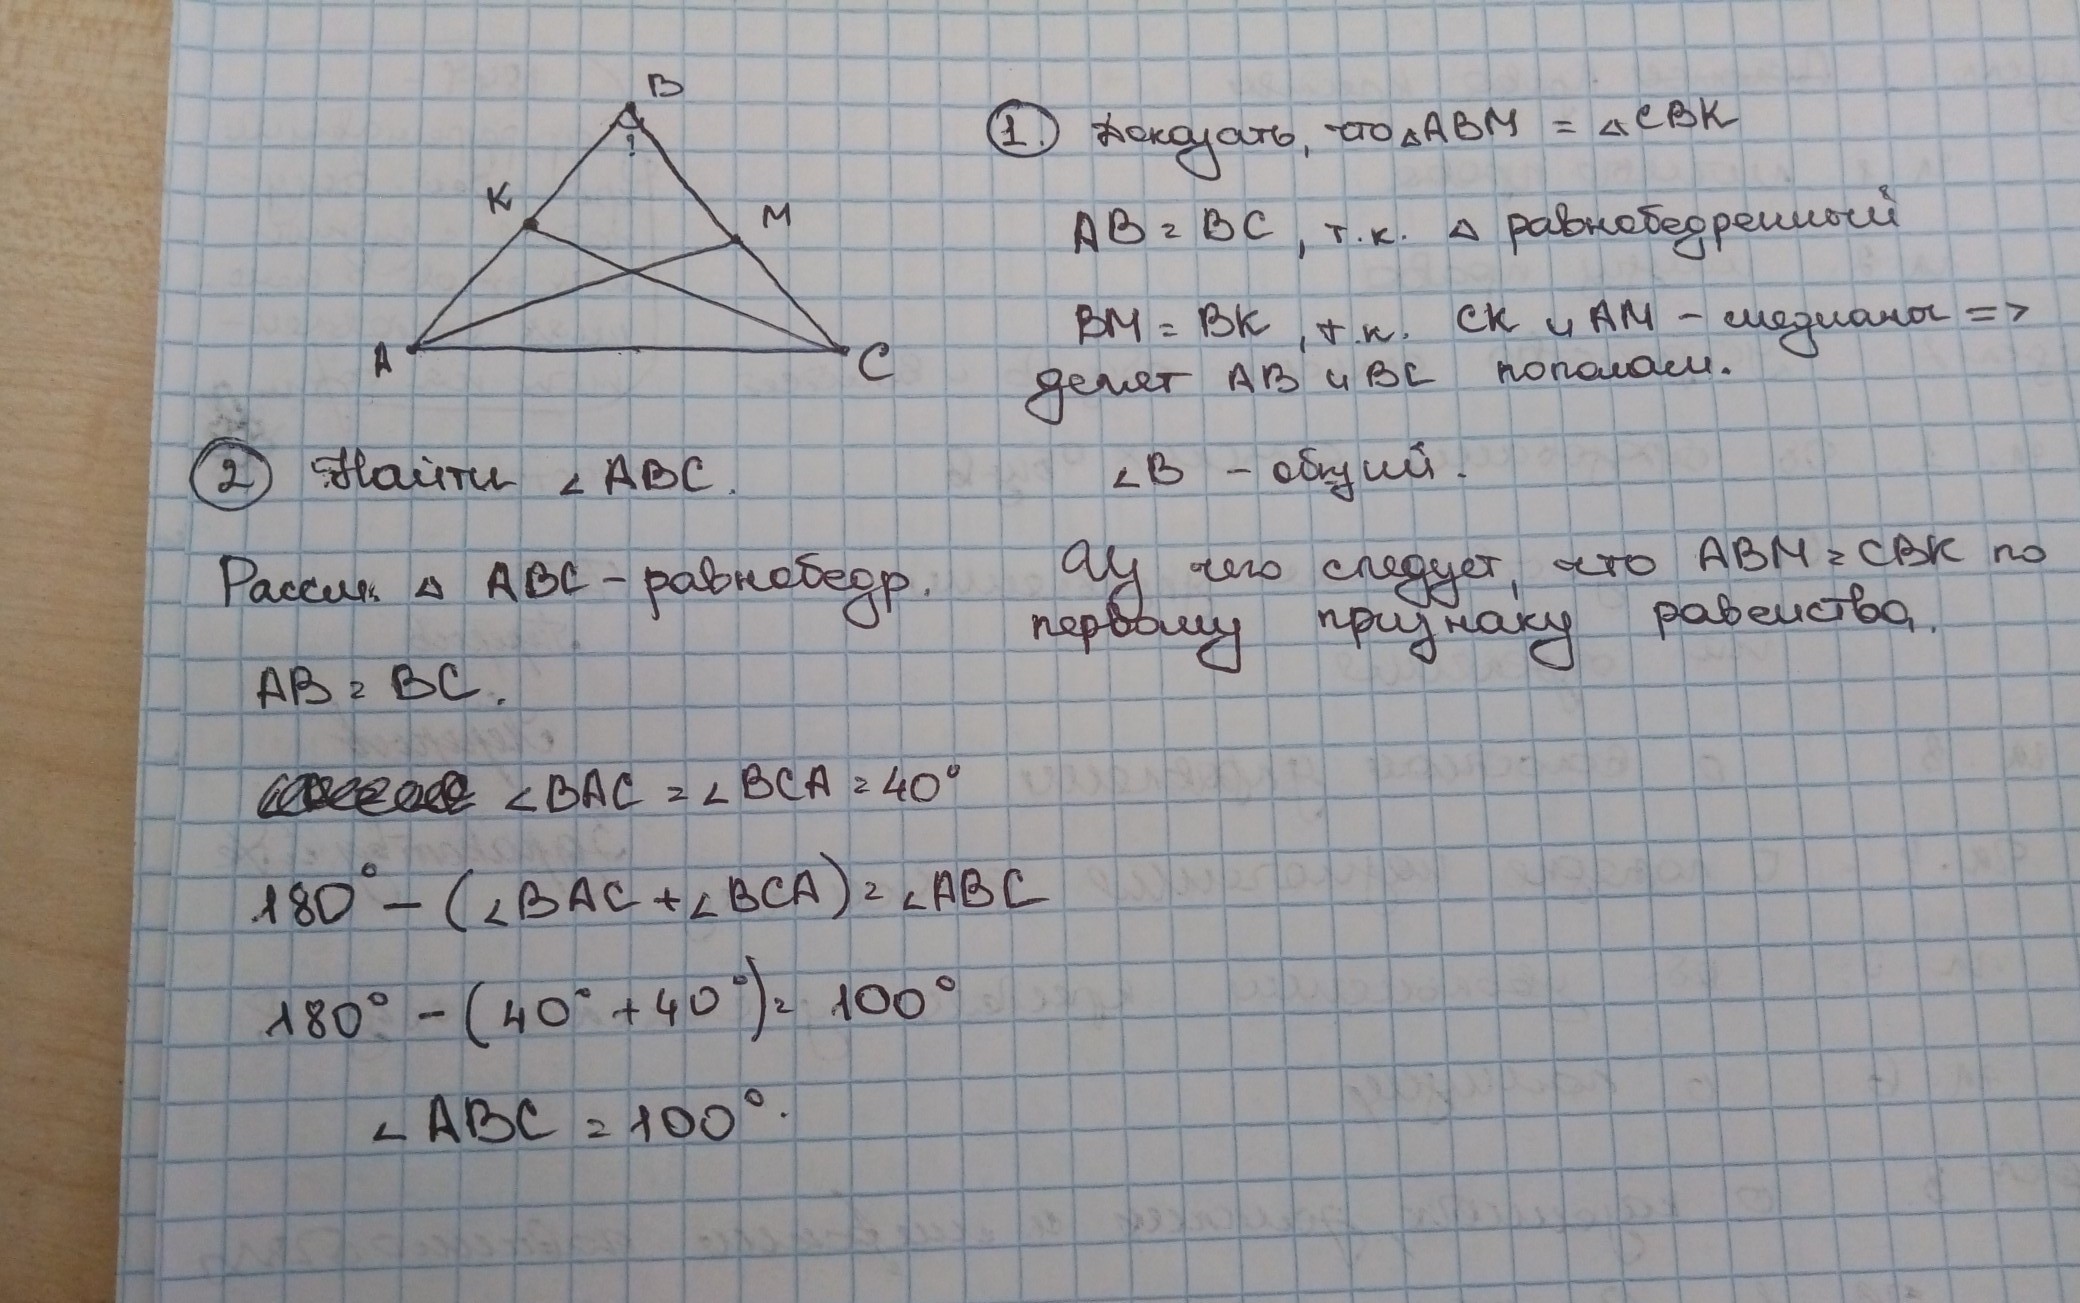 B
K
M
A
C
1. Доказать, что △ABM = △CBK
AB = BC, т.к. △ равнобедренный
BM = BK, т.к. CK и AM – медианы =>
делят AB и BC пополам.
∠B – общий.
Из чего следует, что ABM = CBK по
первому признаку равенства.
2 Найти ∠ABC.
Рассм. △ ABC – равнобедр.
AB = BC.
∠BAC = ∠BCA = 40°
180° – (∠BAC + ∠BCA) = ∠ABC
180° – (40° + 40°) = 100°
∠ABC = 100°.